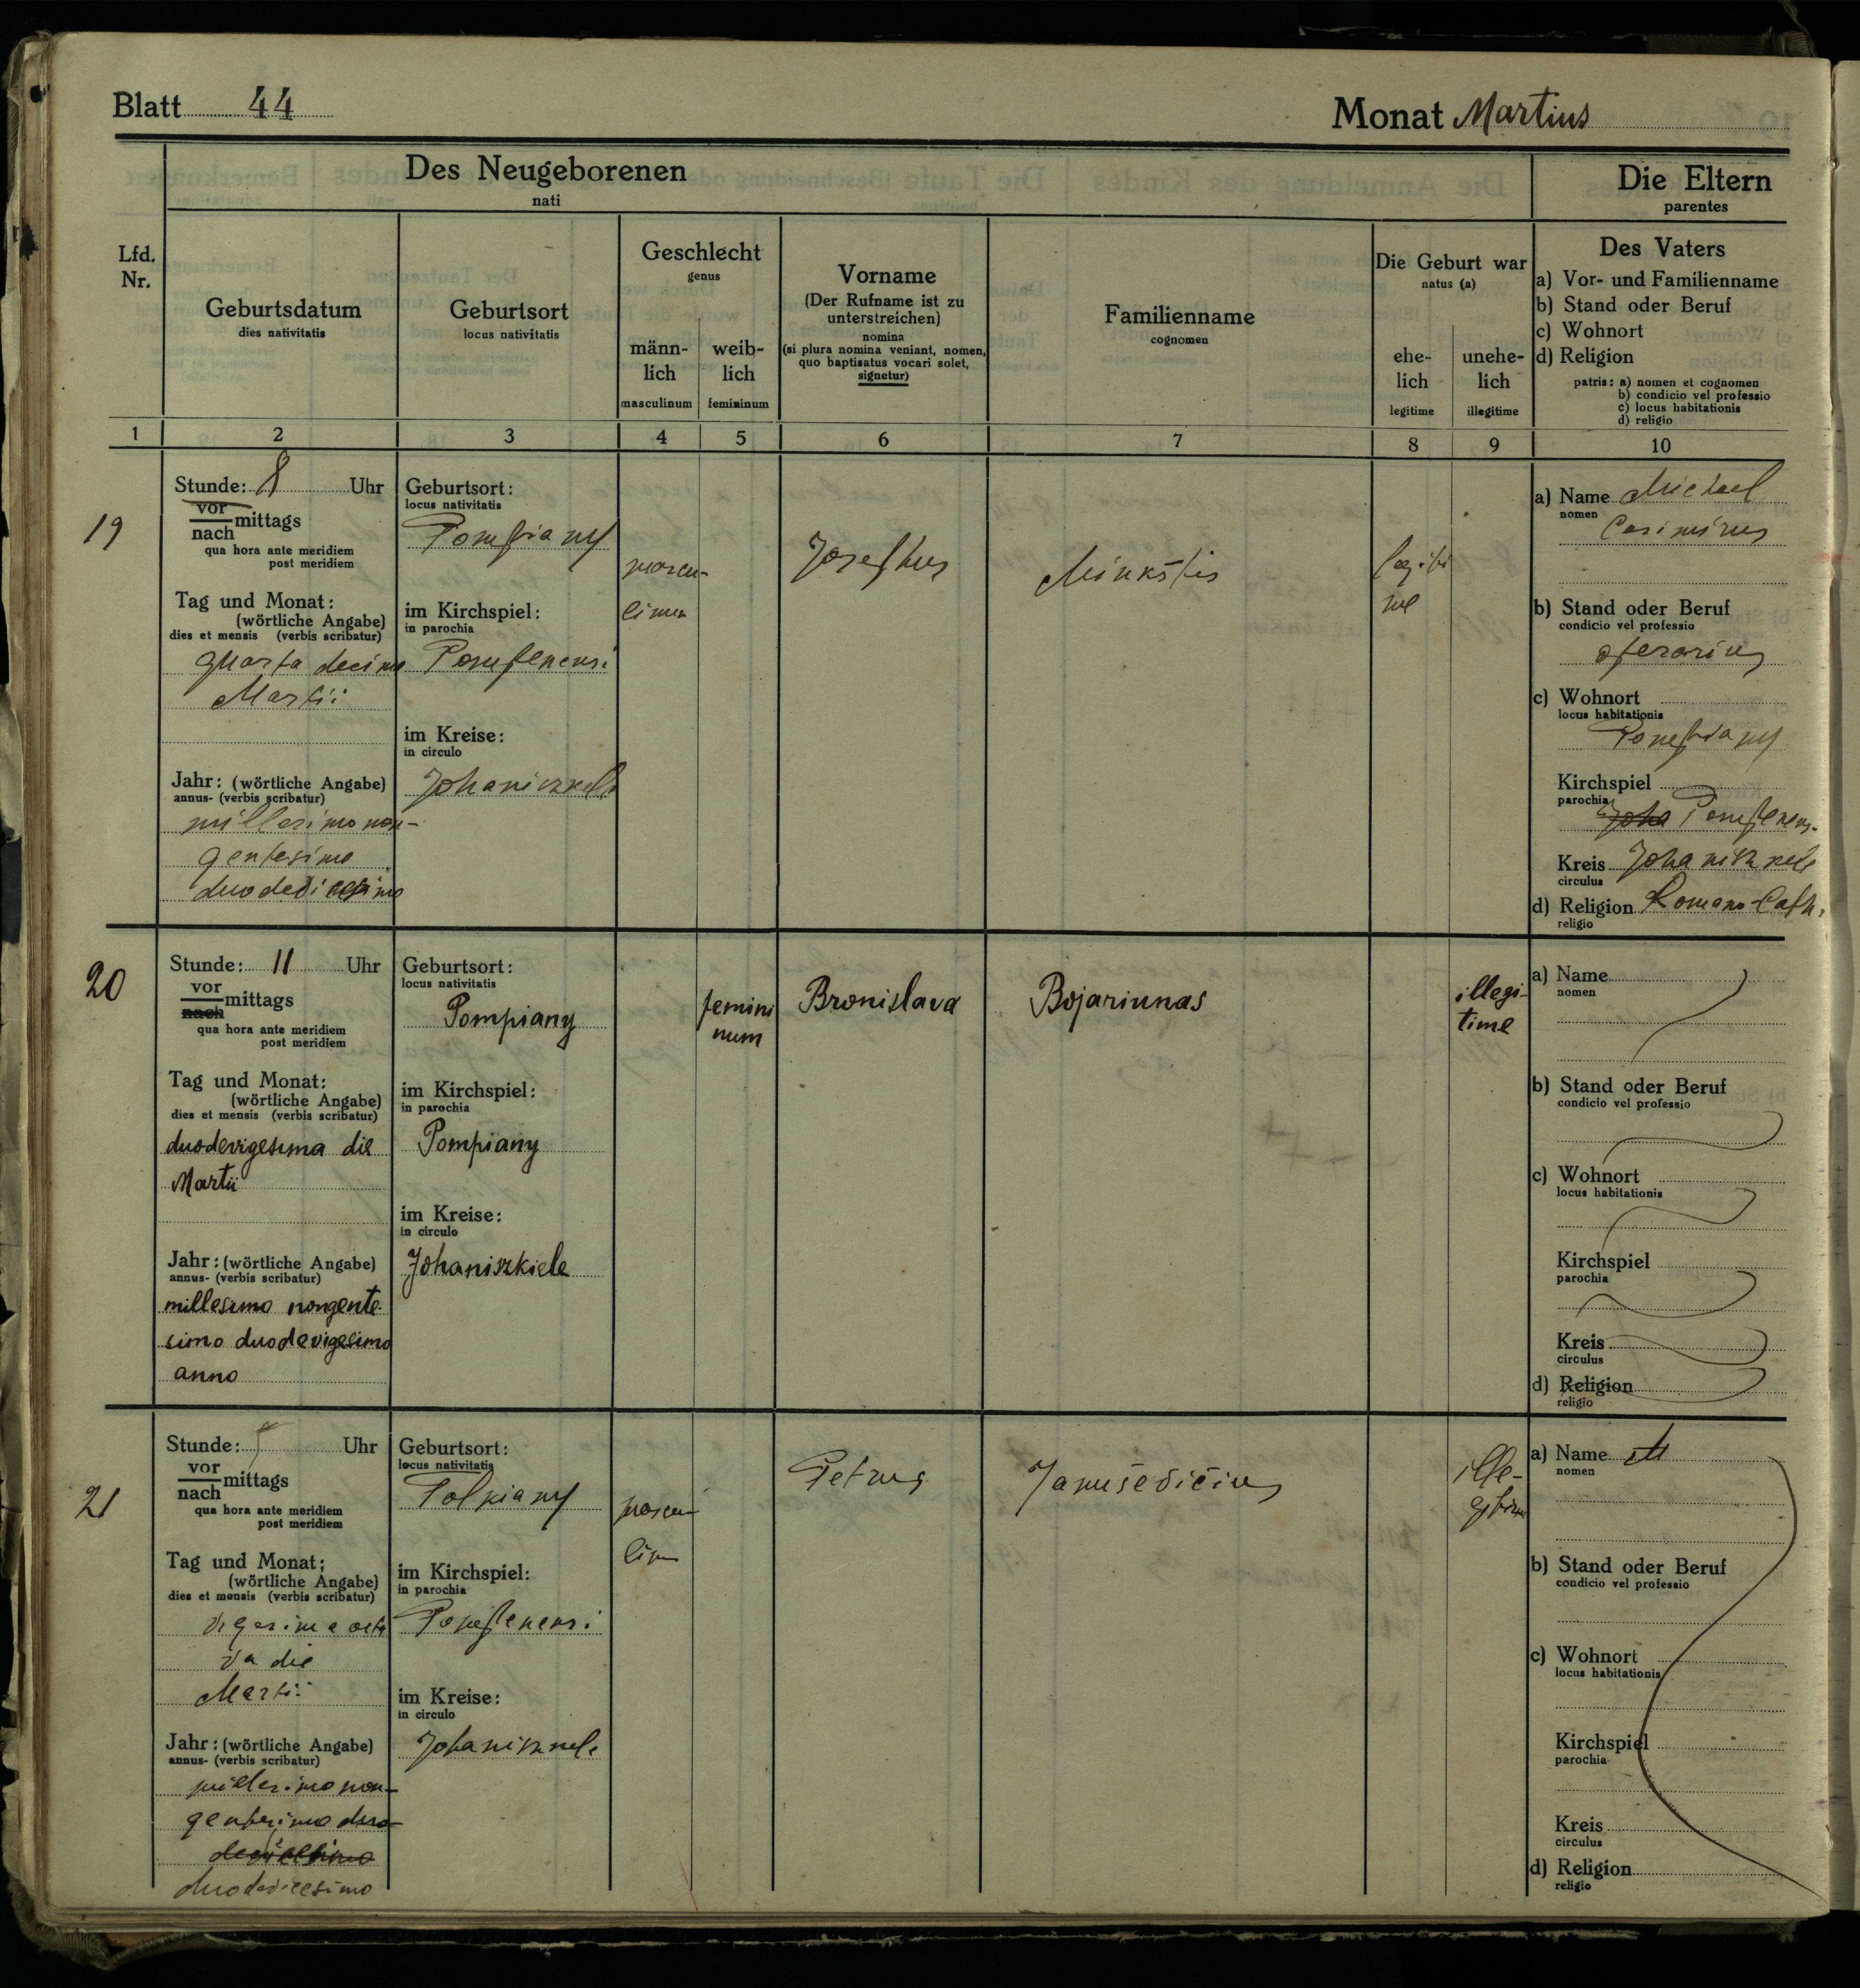 Blatt 44
Monat Martius
Des Neugeborenen
nati
Die Eltern
parentes
Lfd.
Nr.
Geburtsdatum
dies nativitatis
Geburtsort
locus nativitatis
Geschlecht
genus
männ-
lich
masculinum
weib-
lich
femininum
Vorname
(Der Rufname ist zu
unterstreichen)
nomina
(si plura nomina veniant, nomen,
quo baptisatus vocari solet,
signetur)
Familienname
cognomen
Die Geburt war
natus (a)
ehe-
lich
legitime
unehe-
lich
illegitime
Des Vaters
a) Vor- und Familienname
b) Stand oder Beruf
c) Wohnort
d) Religion
patris: a) nomen et cognomen
b) condicio vel professio
c) locus habitationis
d) religio
1 2 3 4 5 6 7 8 9 10
19
Stunde: 8 Uhr
vor
nach mittags
qua hora ante meridiem
post meridiem
Tag und Monat:
(wörtliche Angabe)
dies et mensis (verbis scribatur)
quarta decima
Martii
Jahr: (wörtliche Angabe)
annus- (verbis scribatur)
millesimo non-
gentesimo
Geburtsort:
locus nativitatis
Pompiany
im Kirchspiel:
in parochia
Pompenensi
im Kreise:
in circulo
Johaniszkele
mascu-
linum
Josephus
Minkštis
legiti
me
a) Name Michael
nomen
Casimirus
b) Stand oder Beruf
condicio vel professio
operarius
c) Wohnort
locus habitationis
Pompiany
Kirchspiel
parochia
Joha Pompenens.
Kreis Johaniszkele
circulus
d) Religion Romano-Cath.
religio
20
Stunde: 11 Uhr
vor
nach mittags
qua hora ante meridiem
post meridiem
Tag und Monat:
(wörtliche Angabe)
dies et mensis (verbis scribatur)
duodevigesima die
Martii
Jahr: (wörtliche Angabe)
annus- (verbis scribatur)
millesimo nongente-
simo duodevigesimo
anno
Geburtsort:
locus nativitatis
Pompiany
im Kirchspiel:
in parochia
Pompiany
im Kreise:
in circulo
Johaniszkiele
femini
num
Bronislava
Bojariunas
illegi-
time
a) Name
nomen
b) Stand oder Beruf
condicio vel professio
c) Wohnort
locus habitationis
Kirchspiel
parochia
Kreis
circulus
d) Religion
religio
21
Stunde: Uhr
vor
nach mittags
qua hora ante meridiem
post meridiem
Tag und Monat:
(wörtliche Angabe)
dies et mensis (verbis scribatur)
vigesima octa
va die
Martii
Jahr: (wörtliche Angabe)
annus- (verbis scribatur)
millesimo non-
gentesimo duo-
Geburtsort:
locus nativitatis
im Kirchspiel:
in parochia
Pompenensi
im Kreise:
in circulo
Johaniszkele
mascu-
linu
Petrus
Janušēvičius
ille-
a) Name
nomen
b) Stand oder Beruf
condicio vel professio
c) Wohnort
locus habitationis
Kirchspiel
parochia
Kreis
circulus
d) Religion
religio